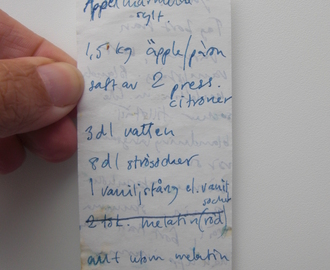 Äppelmarmelad
sylt.
1,5 kg äpple/päron
saft av 2 press.
citroner
3 dl vatten
8 dl strösocker
1 vaniljstång el. vanilj
socker
2 tsk. melatin (röd)
allt utom melatin